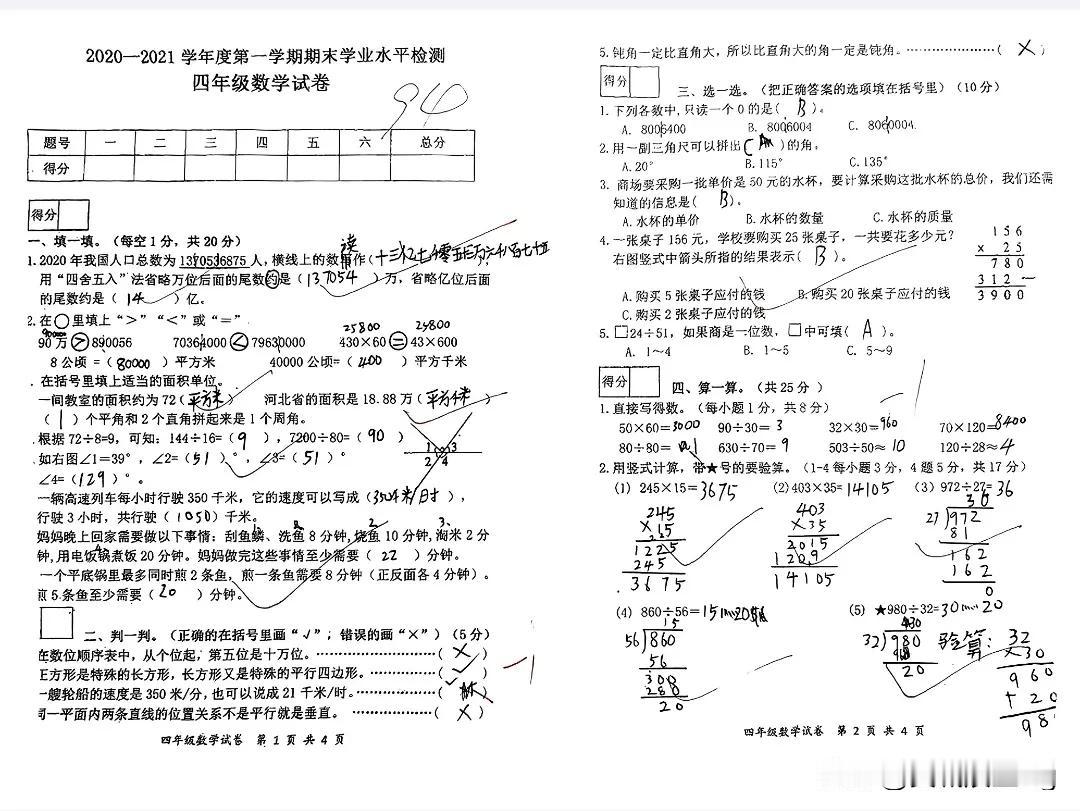 2020—2021 学年度第一学期期末学业水平检测
四年级数学试卷
94
题号 一 二 三 四 五 六 总分
得分
得分
一、填一填。（每空 1 分，共 20 分）
1. 2020 年我国人口总数为 1370536875 人，横线上的数
用“四舍五入”法省略万位后面的尾数约是（137054）万，省略亿位后面
的尾数约是（14）亿。
2. 在○里填上“>”“<”或“=”。
90000 25800 24800
90 万 > 890056 70364000 < 79630000 430×60 = 43×600
8 公顷 =（80000）平方米 40000 公顷=（400）平方千米
. 在括号里填上适当的面积单位。
一间教室的面积约为 72（平方米） 河北省的面积是 18.88 万（平方千米）
（1）个平角和 2 个直角拼起来是 1 个周角。
根据 72÷8=9，可知：144÷16=（9），7200÷80=（90）
如右图∠1=39°，∠2=（51）°，∠3=（51）°
∠4=（129）°。
1 3
2 4
一辆高速列车每小时行驶 350 千米，它的速度可以写成（350千米/时），
行驶 3 小时，共行驶（1050）千米。
妈妈晚上回家需要做以下事情：刮鱼鳞、洗鱼 8 分钟，烧鱼 10 分钟，淘米 2 分
钟，用电饭锅煮饭 20 分钟。妈妈做完这些事情至少需要（22）分钟。
一个平底锅里最多同时煎 2 条鱼，煎一条鱼需要 8 分钟（正反面各 4 分钟）。
煎 5 条鱼至少需要（20）分钟。
二、判一判。（正确的在括号里画“√”；错误的画“×”）（5 分）
在数位顺序表中，从个位起，第五位是十万位。……………（×）
正方形是特殊的长方形，长方形又是特殊的平行四边形。……………（✓）
一艘轮船的速度是 350 米/分，也可以说成 21 千米/时。……………（ ）
-1
同一平面内两条直线的位置关系不是平行就是垂直。……………（×）
四年级数学试卷 第 1 页 共 4 页
5. 钝角一定比直角大，所以比直角大的角一定是钝角。……………（×）
得分
三、选一选。（把正确答案的选项填在括号里）（10 分）
1. 下列各数中，只读一个 0 的是（B）。
A. 8006400 B. 8006004 C. 8060004.
2. 用一副三角尺可以拼出（C）的角。
A. 20° B. 115° C. 135°
3. 商场要采购一批单价是 50 元的水杯，要计算采购这批水杯的总价，我们还需
知道的信息是（B）。
A. 水杯的单价 B. 水杯的数量 C. 水杯的质量
4. 一张桌子 156 元，学校要购买 25 张桌子，一共要花多少元？
右图竖式中箭头所指的结果表示（B）。
A. 购买 5 张桌子应付的钱 B. 购买 20 张桌子应付的钱
C. 购买 2 张桌子应付的钱
156
× 25
780
312
3900
5. □24÷51，如果商是一位数，□中可填（A）。
A. 1～4 B. 1～5 C. 5～9
得分
四、算一算。（共 25 分）
1. 直接写得数。（每小题 1 分，共 8 分）
50×60=3000 90÷30=3 32×30=960 70×120=8400
80÷80=1 630÷70=9 503÷50≈10 120÷28≈4
2. 用竖式计算，带★号的要验算。（1-4 每小题 3 分，4 题 5 分，共 17 分）
(1) 245×15=3675 (2) 403×35=14105 (3) 972÷27=36
245
×15
1225
245
3675
403
×35
2015
1209
14105
27 972
81
162
162
0
(4) 860÷56=15……20 (5) ★980÷32=30……20
15
56 860
56
300
280
20
32 980
20
验算：32
×30
960
+ 20
98
四年级数学试卷 第 2 页 共 4 页